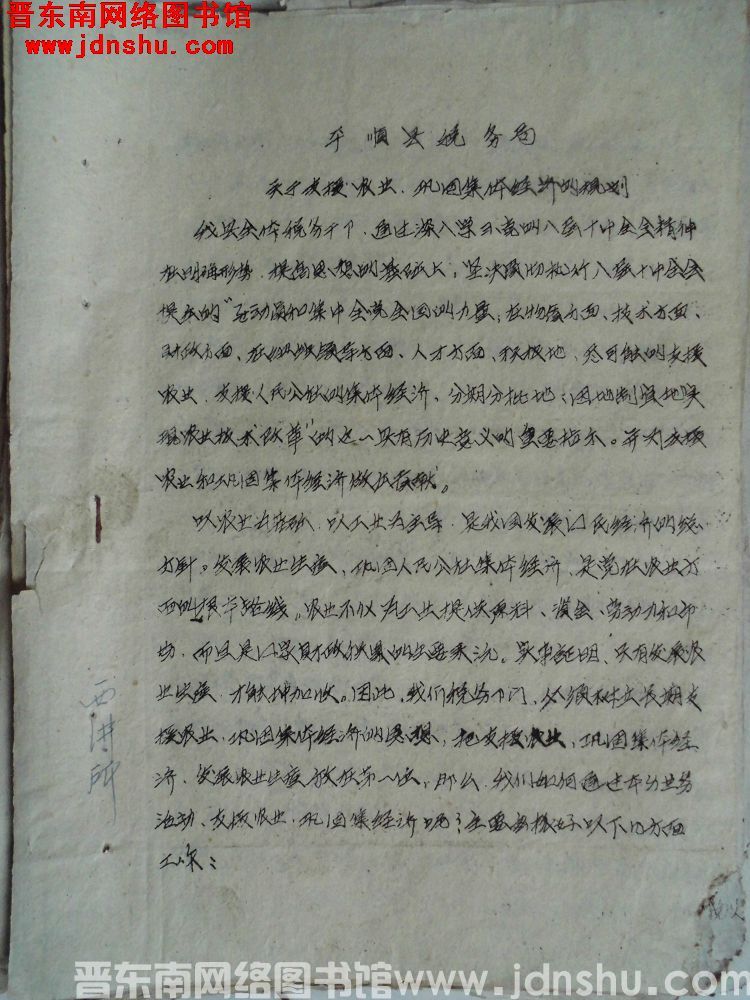 晋东南网络图书馆
www.jdnshu.com
平顺县税务局
关于支援农业、巩固集体经济的规划
我县全体税务干卩，通过深入学习党的八届十中全会精神
在明确形势、提高思想的基础上，坚决贯彻执行八届十中全会
提出的“要动员和集中全党全国的力量，在物质方面、技术方面、
财政方面、在组织领导方面、人才方面、积极地、尽可能的支援
农业，支援人民公社的集体经济、分期分批地；因地制宜地实
现农业技术改革”的这一具有历史意义的重要指示。并为支援
农业和巩固集体经济做出贡献。
以农业为基础，以工业为主导，是我国发展囗民经济的总
方针。发展农业生产、巩固人民公社集体经济，是党在农业方
面的根本路线。农业不仅为工业提供原料、资金、劳动力和市
场，而且是囗家财政积累的主要来沅。实事证明，只有发展农
业生产，才能增加收。因此，我们税务卩门，必须树立长期支
援农业、巩固集体经济的思想，把支援农业，巩固集体经
济、发展农业生产放在第一位。那么，我们如何通过本分业务
活动、支援农业、巩固集经济呢？主要要抓好以下几方面
工作：
西沟所
晋东南网络图书馆www.jdnshu.com